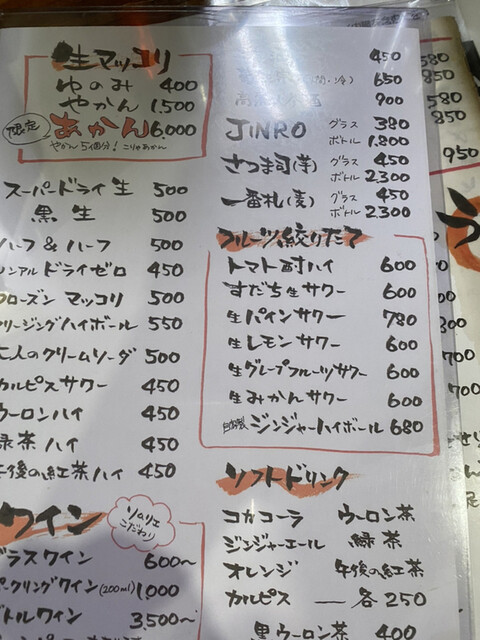 生マッコリ
ゆのみ 400
やかん 1,500
限定 あかん 6,000
やかん5個分! こりゃあかん
スーパードライ 生 500
黒 生 500
ハーフ & ハーフ 500
ノンアル ドライゼロ 450
フローズン マッコリ 500
フリージングハイボール 550
大人のクリームソーダ 500
カルピスサワー 450
ウーロンハイ 450
緑茶ハイ 450
午後の紅茶ハイ 450
ワイン
ソムリエ こだわり
グラスワイン 600〜
パークリングワイン(200ml) 1,000
ボトルワイン 3,500〜
450
650
900
JINRO グラス 380
ボトル 1,800
さつま司(芋) グラス 450
ボトル 2,300
一番札(麦) グラス 450
ボトル 2,300
フルーツ絞りたて
トマト酎ハイ 600
すだち生サワー 600
生パインサワー 780
生レモンサワー 600
生グレープフルーツサワー 600
生みかんサワー 600
自家製 ジンジャーハイボール 680
ソフトドリンク
コカコーラ ウーロン茶
ジンジャーエール 緑茶
オレンジ 午後の紅茶
カルピス — 各250
黒ウーロン茶 400
580
850
580
850
950
700
700